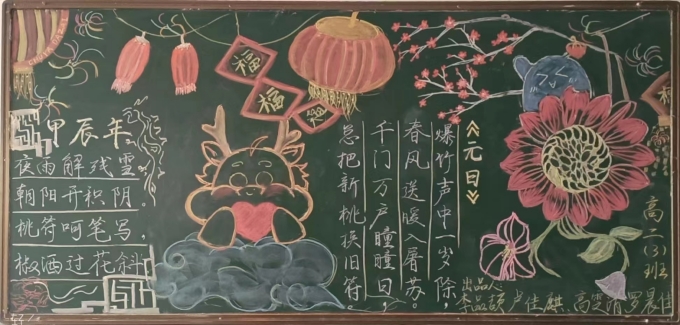 福
福
福
甲辰年
夜雨解残雪
朝阳开积阴。
桃符呵笔写,
椒酒过花斜
《元日》
爆竹声中一岁除,
春风送暖入屠苏。
千门万户曈曈日,
总把新桃换旧符。
高二(3)班
出品人:
卢佳麒、高雯清 罗晨佳